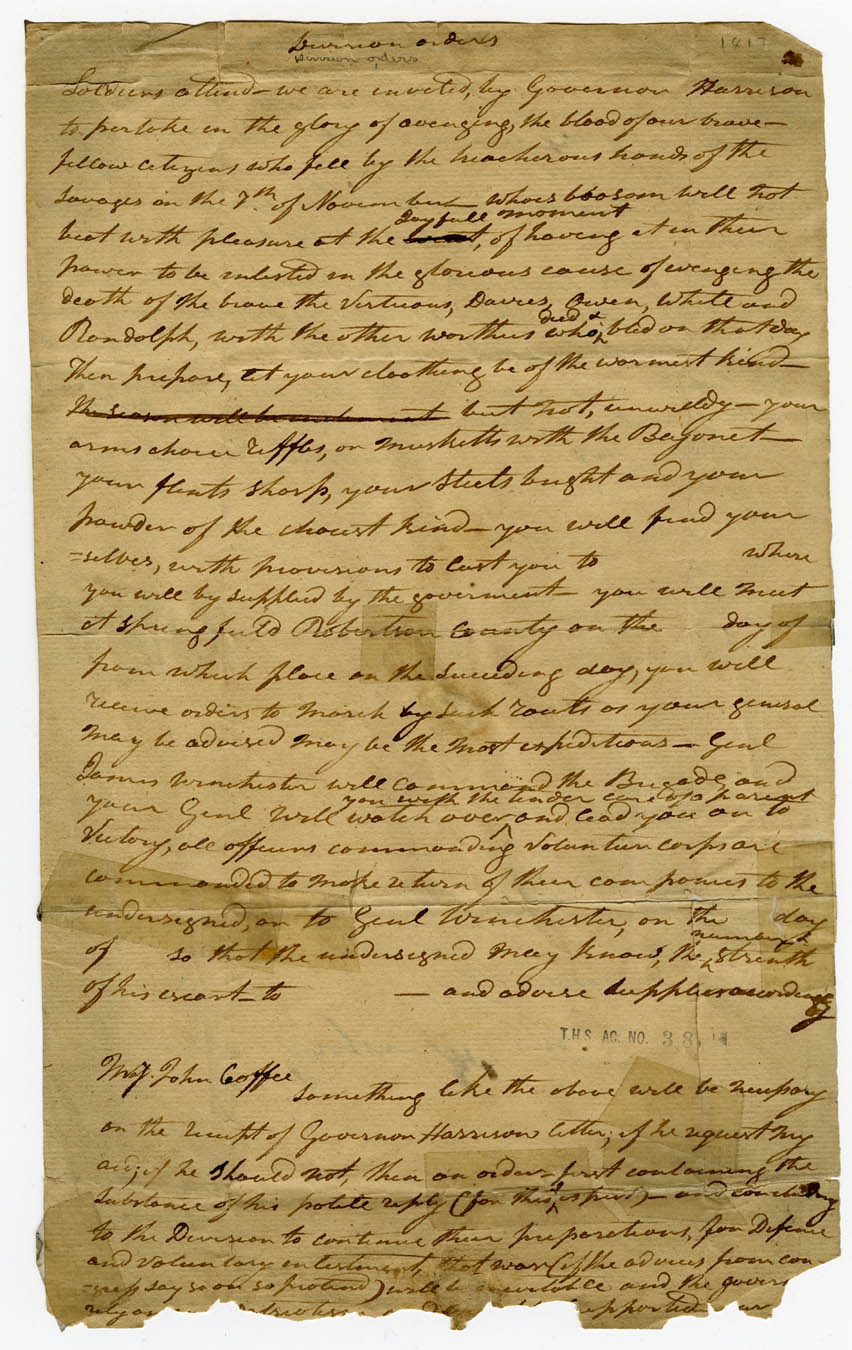 Division orders
Division orders
1817
Soldiers attend — we are invited, by Governor Harrison
to pertake in the glory of avenging, the blood of our brave —
fellow citizens who fell by the treacherous hands of the
savages on the 7th of November — whoes boosom will not
Joyfull moment
beat with pleasure at the , of having it in their
power to be enlisted in the glorious cause of evenging the
death of the brave the virtuous, Davies, Owen, White and
died &
Randolph, with the other worthies who bled on that day
Then prepare, let your cloothing be of the warmest kind —
The season will be inclement but not, unwieldy — your
arms choice riffles, or musketts with the Bayonet —
your flints sharp, your steels bright and your
powder of the choist kind — you will find your
=selves, with provisions to last you to where
you will by supplied by the goverment — you will meet
at springfield Robertson county on the day of
from which place on the succeeding day, you will
receive orders to march by such routs as your general
may be advised may be the most expeditious — Genl
James Winchester will command the Brigade, and
you with the tender care of a parent
your Genl will watch over and lead you on to
Victory, all officers commanding volunteer corps are
commanded to make return of their companies to the
undersigned, or to Genl Winchester, on the day
number &
of so that the undersigned may know, the strenth
of his escort — to — and advise supplies accordingly
T.H.S. AC. NO. 38
Maj. John Coffee
something like the above will be necessary
on the receipt of Governor Harrison letter; if he request my
aid; if he should not, then an order first containing the
substance of his polite reply (for this is prest) — and concluding
to the Division to continue their preparations, for Defence
and voluntary enlistment, that war (if the advices from con-
-gress say so or so protend) will be inevitable and the govern
rely on supported